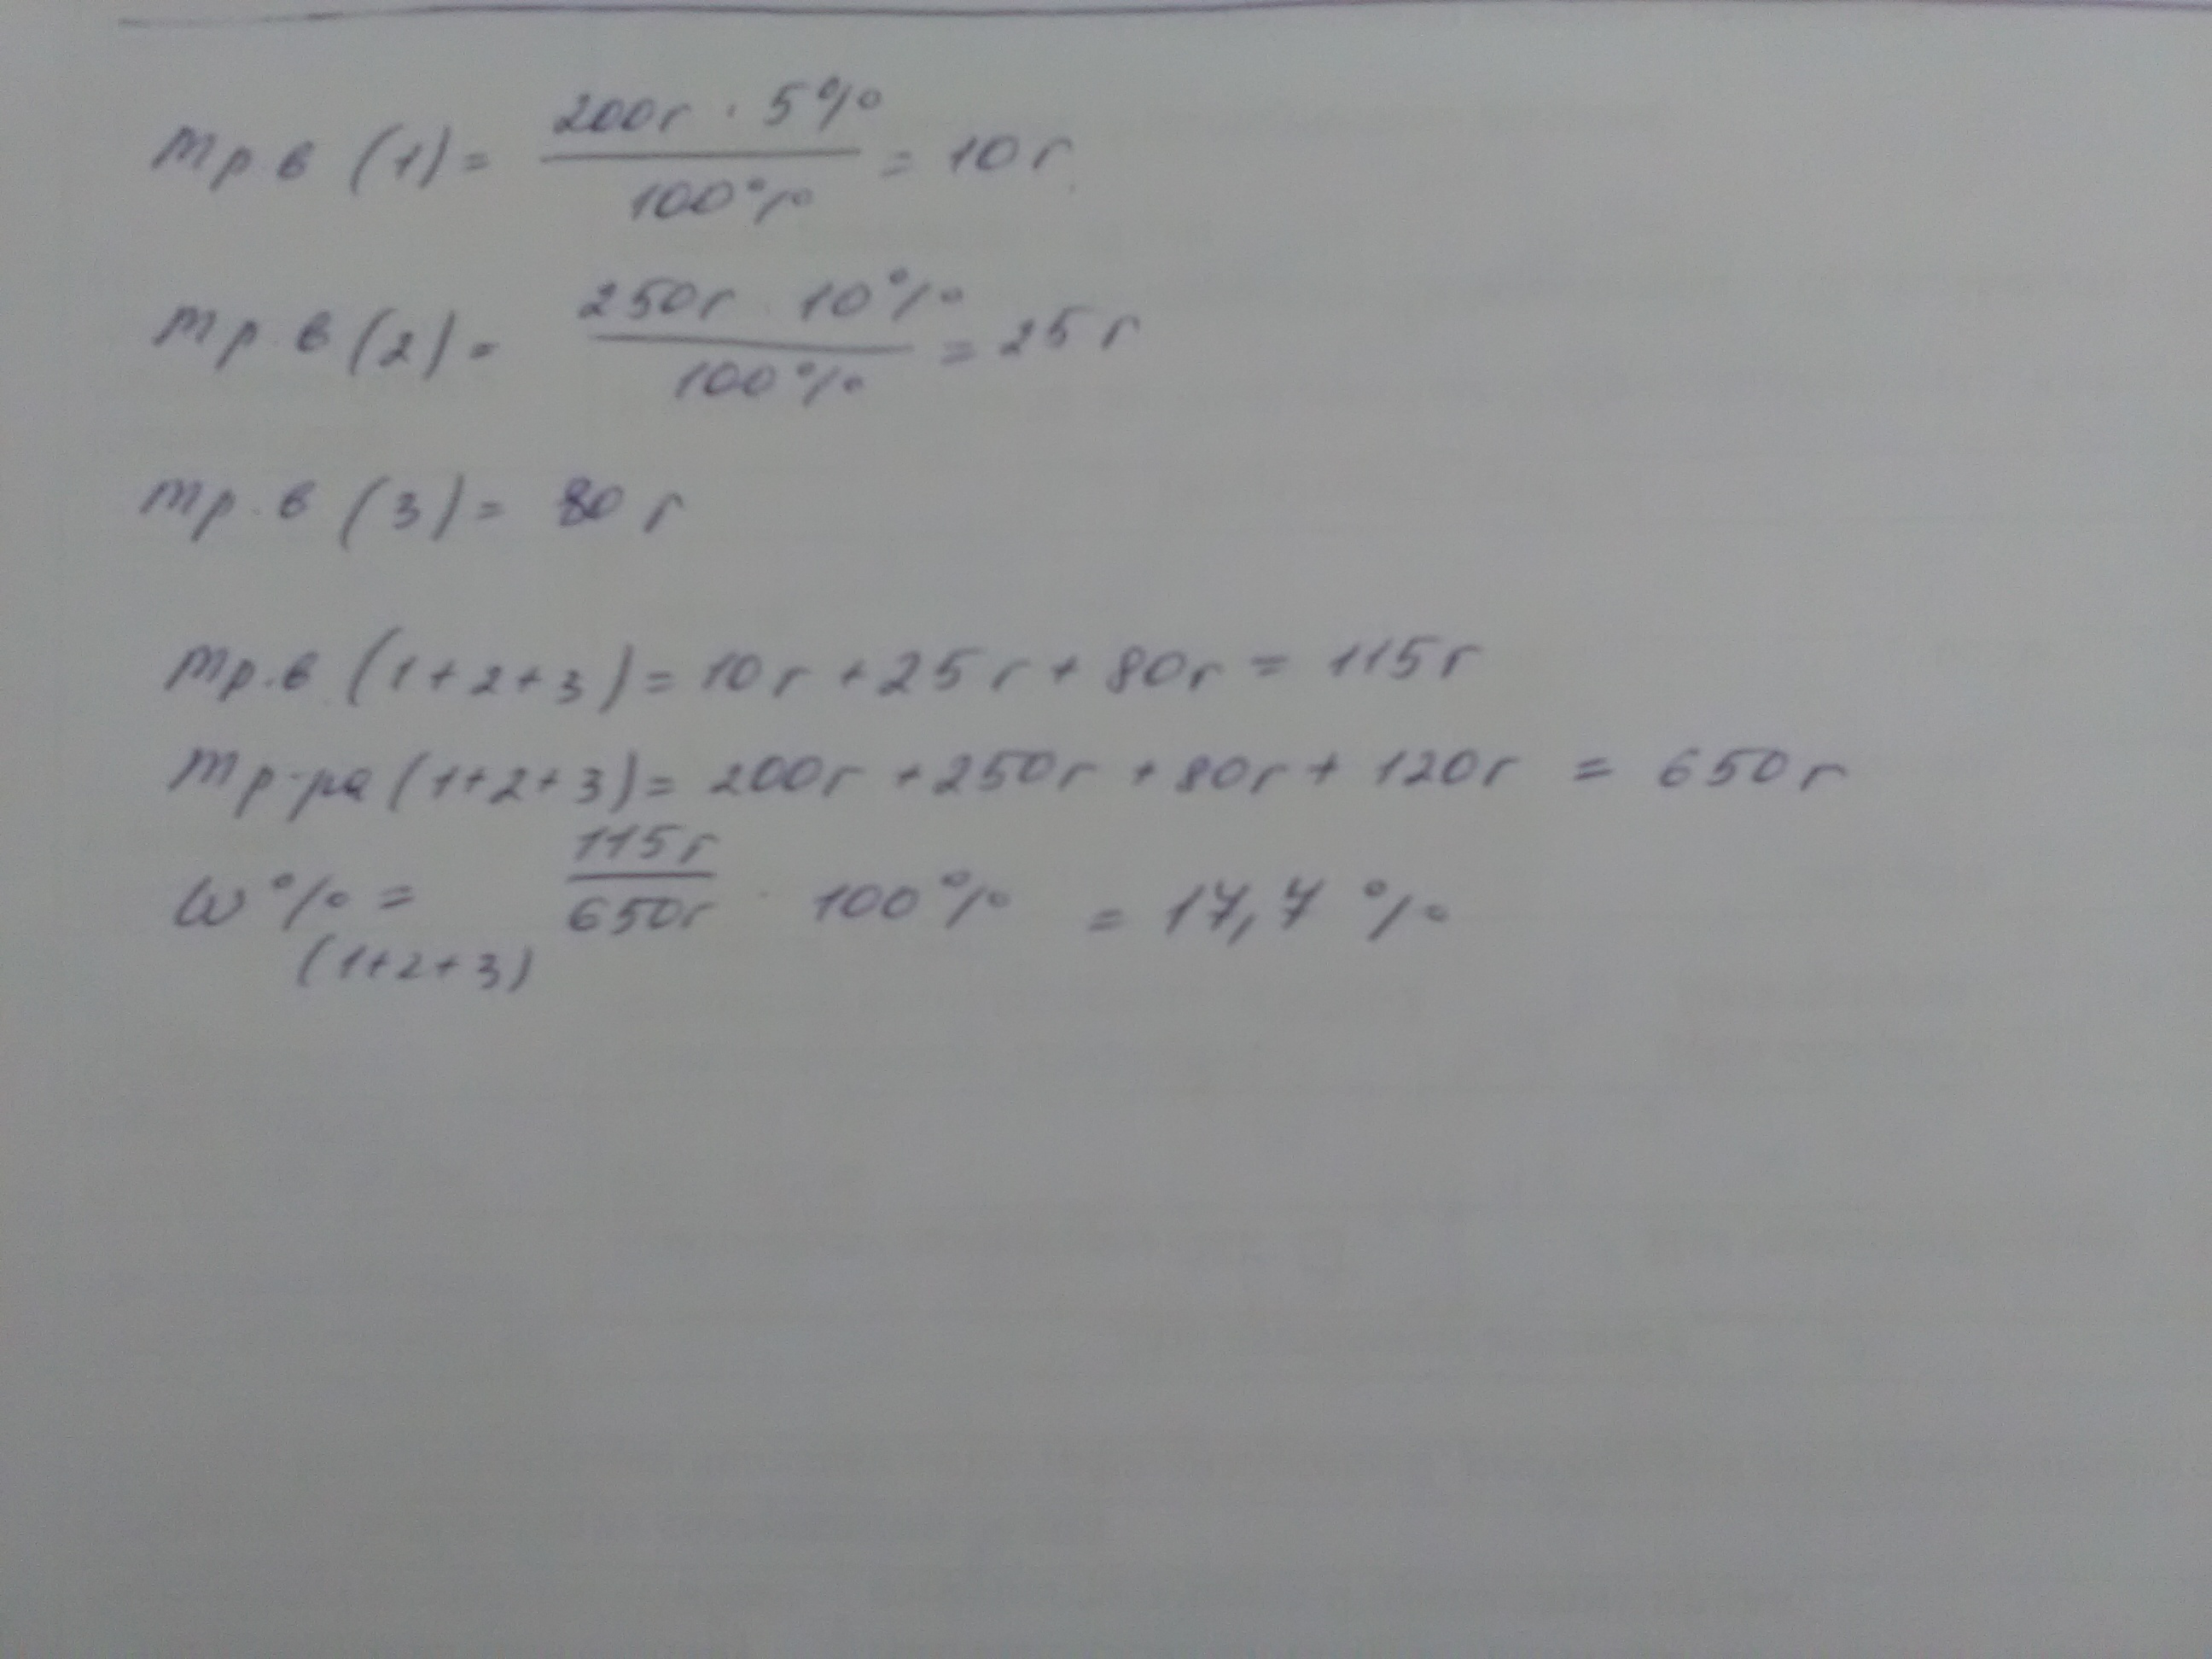 mр.в (1) = 200г · 5% / 100% = 10г
mр.в (2) = 250г · 10% / 100% = 25г
mр.в (3) = 80г
mр.в (1+2+3) = 10г + 25г + 80г = 115г
mр-ра (1+2+3) = 200г + 250г + 80г + 120г = 650г
ω% (1+2+3) = 115г / 650г · 100% = 17,7%